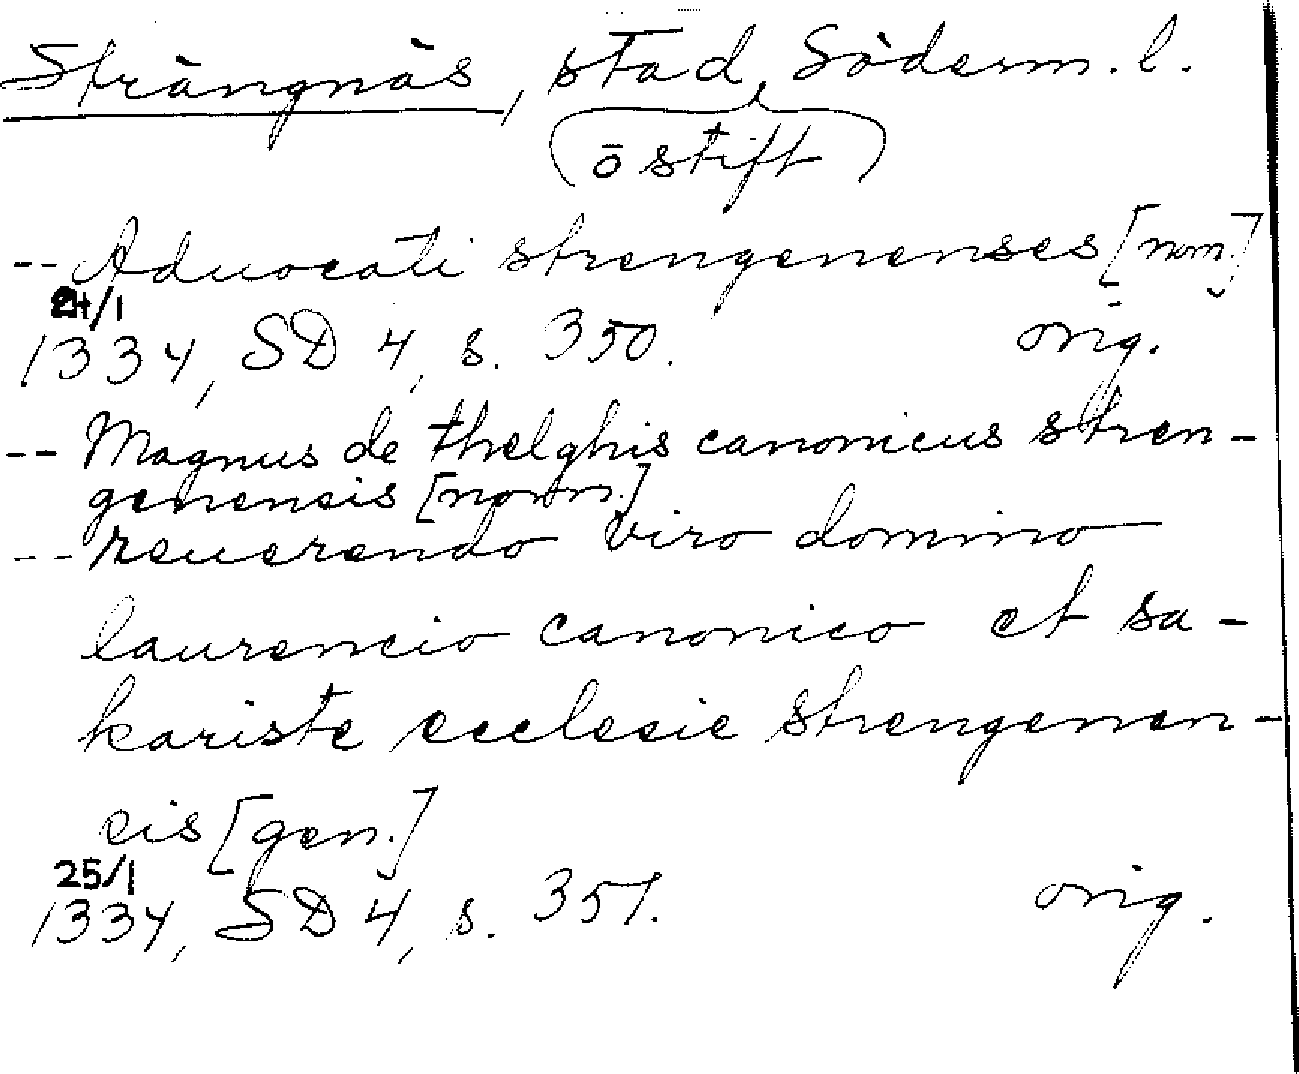 Strängnäs, stad, Söderm. l.
(o stift)
-- Aduocati strengenenses [nom.]
24/1
1334, SD 4, s. 350. orig.
-- Magnus de thelghis canonicus stren-
genensis [nom.]
-- Reuerendo viro domino
laurencio canonico et sa-
kariste ecclesie strengenen-
cis [gen.]
25/1
1334, SD 4, s. 351. orig.